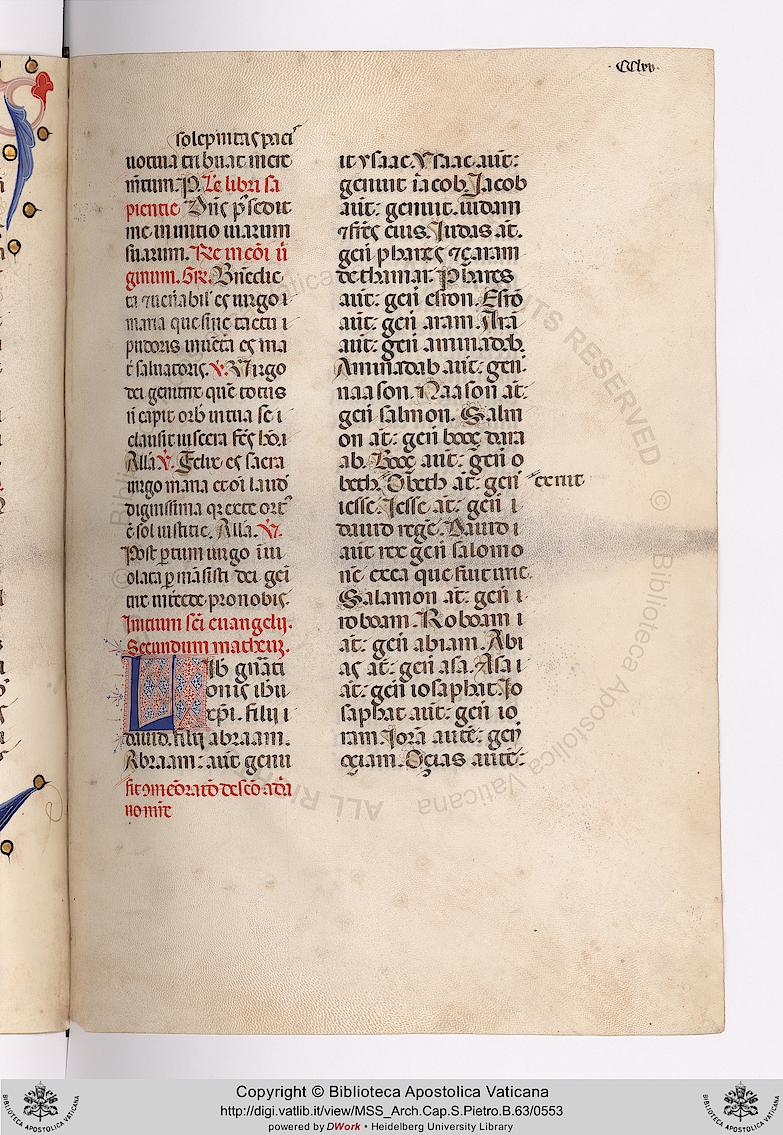 CClxv.
uotiua tribuat incre
mentum. P. Le libri sa
pientie Dn̄s p̄sedit
me in initio uiarum
suarum. Re in cōi ur̄
ginum. GR. Bn̄edic
ta & uen̄abil' es uirgo
maria que sine tactu
pudoris inuēta es ma
t̄ saluatoris. V. Virgo
dei genitrix quē totus
n̄ capit orb in tua se
clausit uiscera fc̄s hō.
Alla V. Felix es sacra
uirgo maria et oī laud
dignissima qr ex te ort'
ē sol iustitie. Alla. V.
Post ptum uirgo īui
olata p̄māsisti dei gei
trix intcede pro nobis.
Initium sc̄i euangelij.
Secundum matheū.
Lib gn̄ati
onis ih̄u
xp̄i. filii
dauid. filij abraam.
Abraam: aut genu
fit 9meōratō de sc̄o adā
no mr̄e
it ysaac. Ysaac aut̄:
genuit iacob. Jacob
aut̄: genuit. iudam
& fr̄es eius. Iudas at̄.
gen̄ phares & çaram
de thamar. Phares
aut̄: gen̄ esron. Esrō
aut̄: gen̄ aram. Arā
aut̄: gen̄ aminadab.
Aminadab aut̄: gen̄
naason. Naason at̄:
gen̄ salmon. Salm
on at̄: gen̄ booç dara
ab. Booç aut̄: gen̄ o
beth. Obeth at̄: gen̄ ex rut
iesse. Jesse at̄: gen̄
dauid regē. Dauid
aut̄ rex gen̄ salomo
nē ex ea que fuit urie.
Salamon at̄: gen̄
roboam. Roboam
at̄: gen̄ abiam. Abi
as at̄: gen̄ asa. Asa
at̄: gen̄ iosaphat. Jo
saphat aut̄: gen̄ io
ram. Jorā autē: gen̄
oçiam. Oçias autē:
ALL RIGHTS RESERVED © Biblioteca Apostolica Vaticana
Copyright © Biblioteca Apostolica Vaticana
http://digi.vatlib.it/view/MSS_Arch.Cap.S.Pietro.B.63/0553
powered by DWork • Heidelberg University Library
BIBLIOTECA APOSTOLICA VATICANA
BIBLIOTECA APOSTOLICA VATICANA